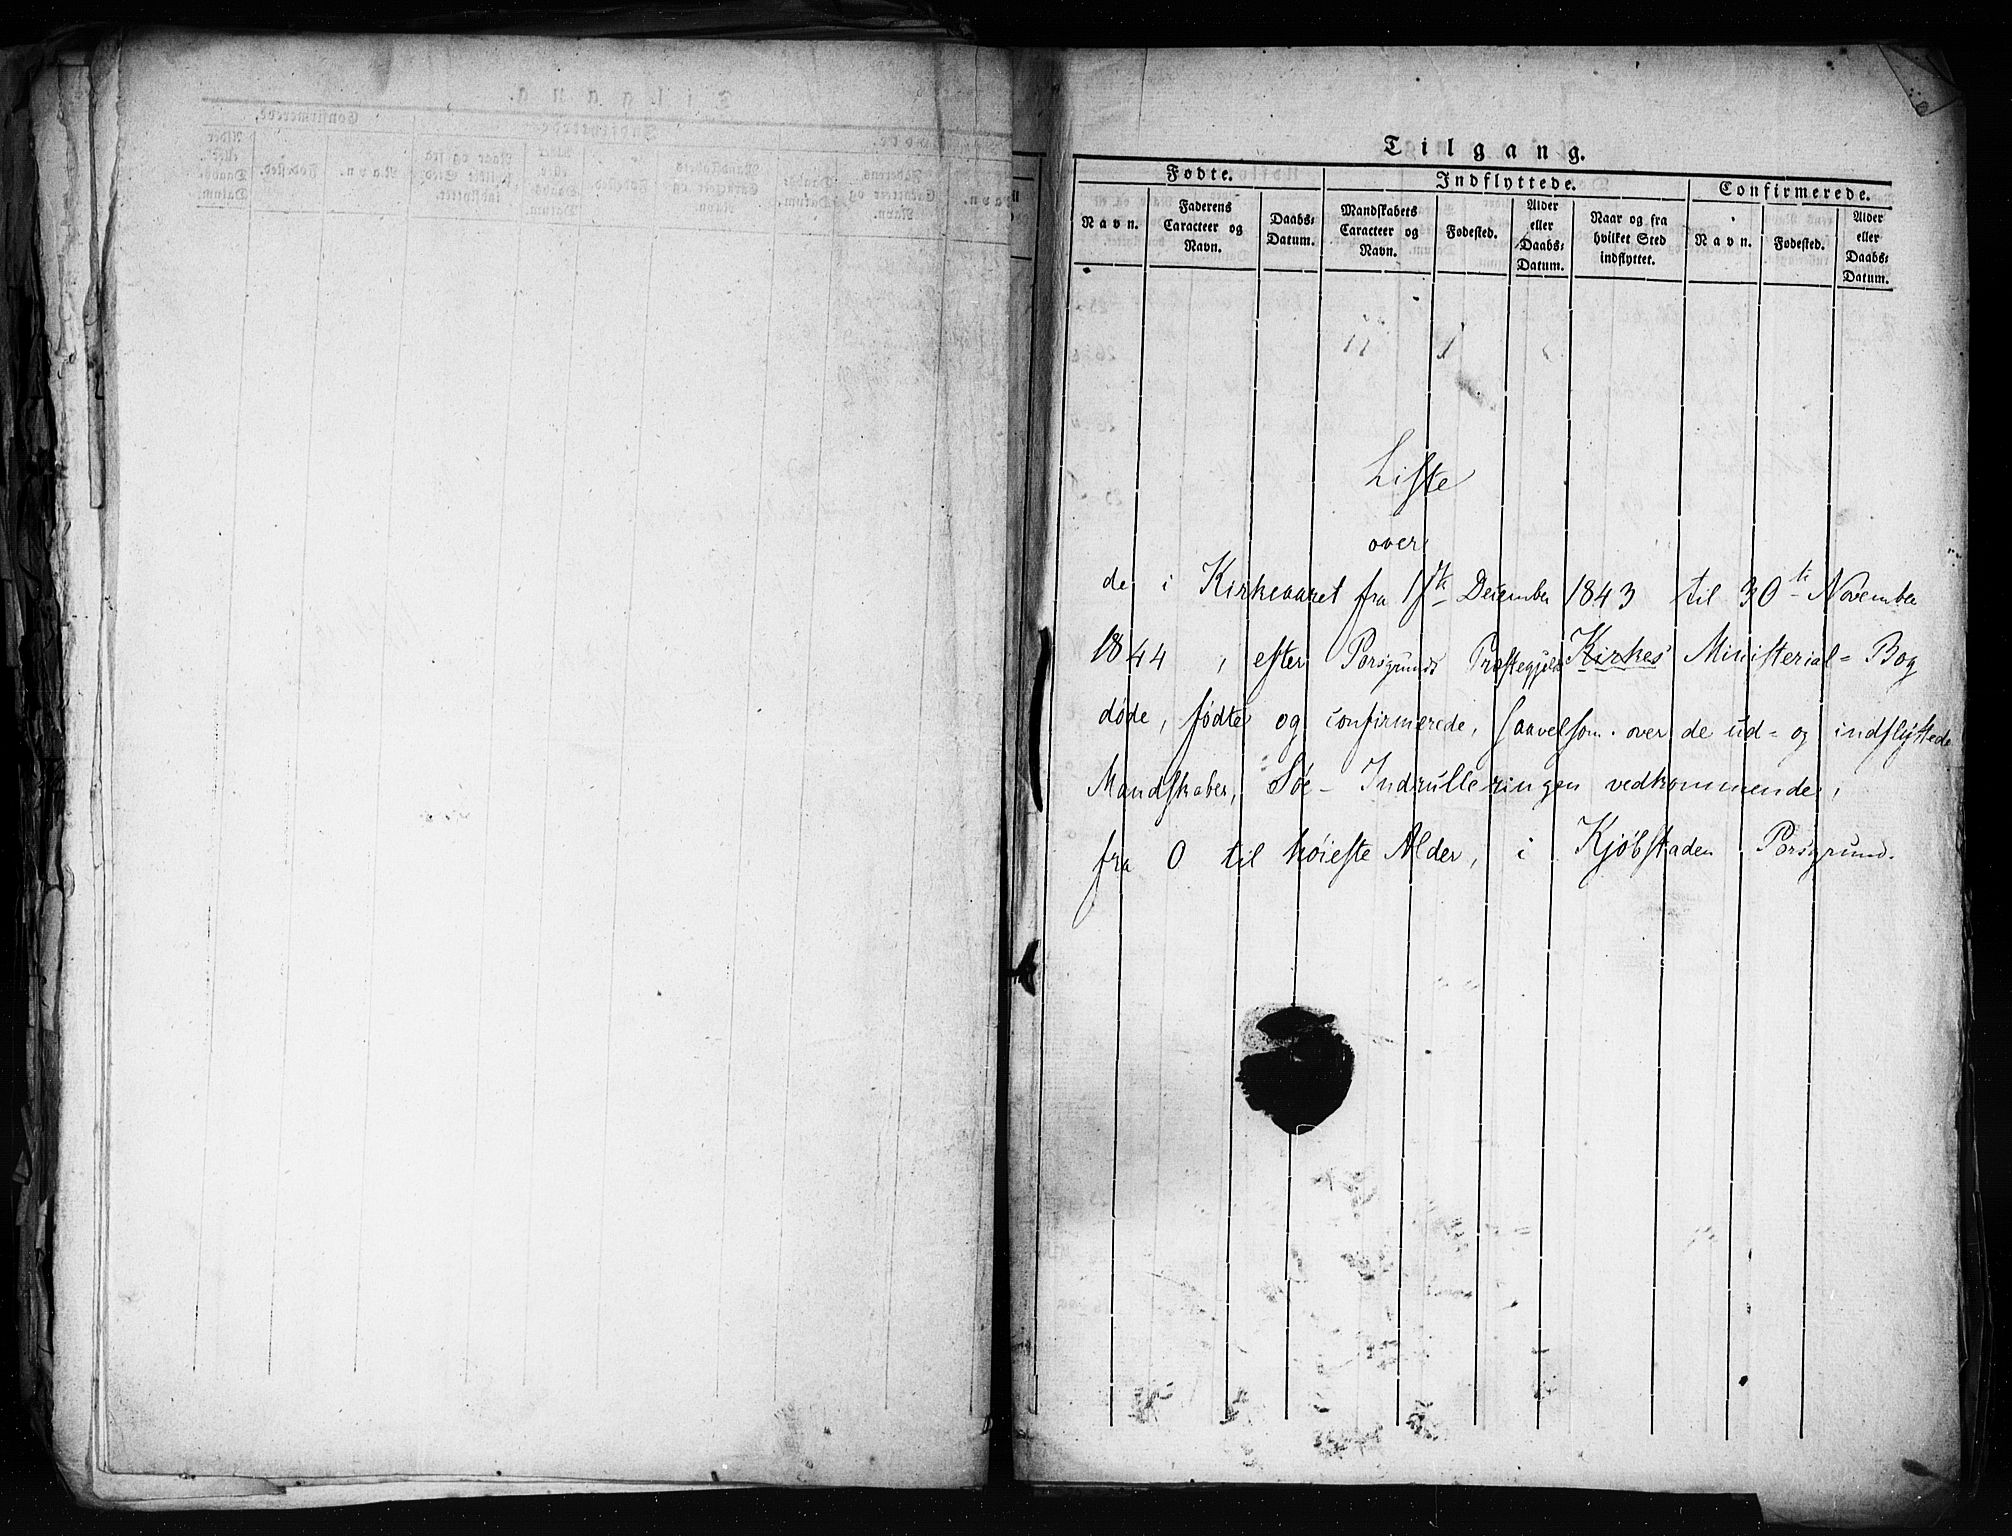 Tilgang.
Fødte. Indflyttede. Confirmerede.
Navn. Faderens Caracteer og Navn. Daabs-Datum. Mandskabets Caracteer og Navn. Fødested. Alder eller Daabs-Datum. Naar og fra hvilket Sted indflyttet. Navn. Fødested. Alder eller Daabs-Datum.
Liste
over
de i Kirkeaaret fra 1ste December 1843 til 30te November
1844, efter Porsgrunds Præstegjelds Kirkes Ministerial-Bog
døde, fødte og confirmerede, saavelsom over de ud- og indflyttede
Mandskaber, Søe-Indrulleringen vedkommende,
fra 0 til høieste Alder, i Kjøbstaden Porsgrund.